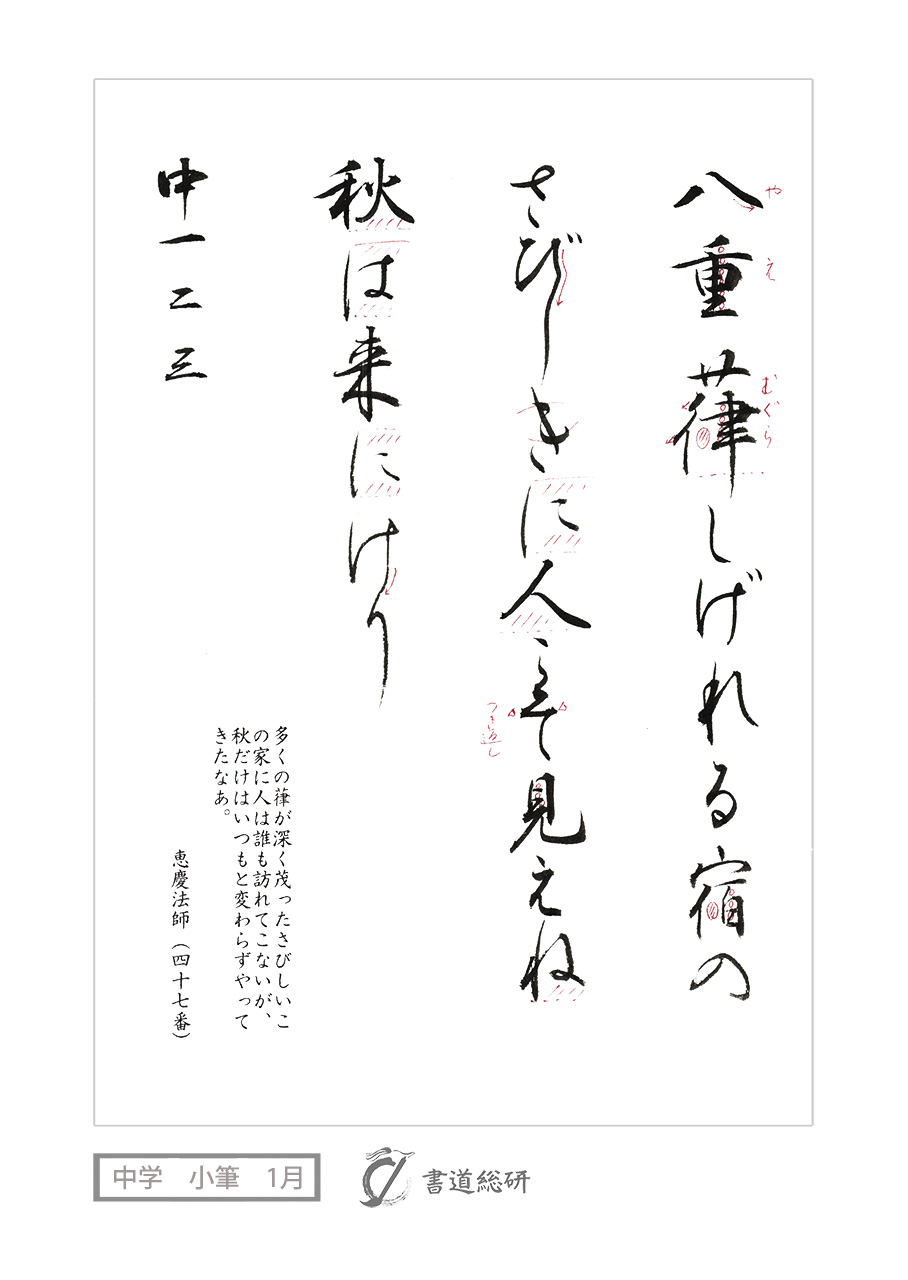 八重葎しげれる宿の
や
え
むぐら
さびしきに人こそ見えね
つき返し
秋は来にけり
多くの葎が深く茂ったさびしいこ
の家に人は誰も訪れてこないが、
秋だけはいつもと変わらずやって
きたなあ。
恵慶法師（四十七番）
中一二三
中学　小筆　1月
書道総研